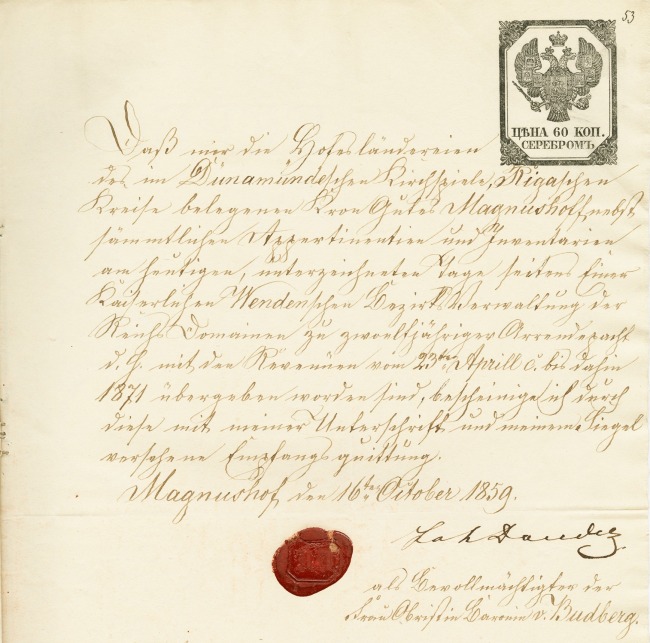 53
ЦѢНА 60 КОП.
СЕРЕБРОМЪ
Daß mir die Hofesländereien
des im Dünamündeschen Kirchspiele, Rigaschen
Kreise belegenen Kron Gutes Magnushoff nebst
sämmtlichen Appertinentien und Inventarien
am heutigen, unterzeichneten Tage seitens Einer
Kaiserlichen Wendenschen Bezirks Verwaltung der
Reichs Domainen zu zwoelfjähriger Arrendepacht
d. h. mit den Revenüen vom 23ten Aprill c. bis dahin
1871 übergeben worden sind, bescheinige ich durch
diese mit meiner Unterschrift und meinem Siegel
versehene Empfangsquittung.
Magnushof, den 16ten October 1859.
als Bevollmächtigter der
Frau Obristin Baronin v. Budberg.